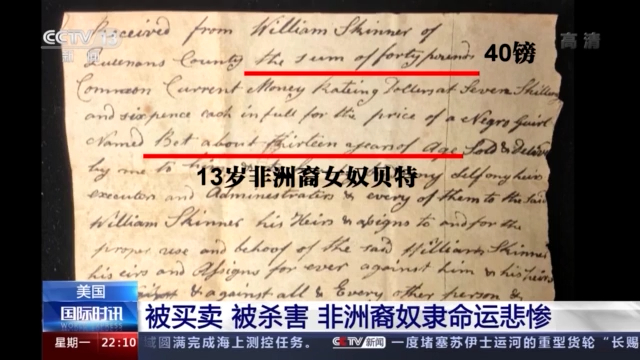 CCTV 13
新闻
高清
Received from William Skinner of
Queenans County the sum of forty pounds
40镑
Common Current Money Rateing Dollers at Seven Shilling
and sixpence each in full for the price of a Negro Guirl
Named Bet about thirteen years of Age Sold &
by me to
13岁非洲裔女奴贝特
executors and Administrators & every of them to the said
William Skinner his Heirs & assigns to and for the
proper use and behoof of the said William Skinner
heirs and Assigns for ever against him & his heirs
& against all & Every other person &
美国
国际时讯
被买卖 被杀害 非洲裔奴隶命运悲惨
星期一 22:10 城圆满完成海上测控任务。 CCTV 新闻 一度堵塞苏伊士运河的重型货轮“长赐